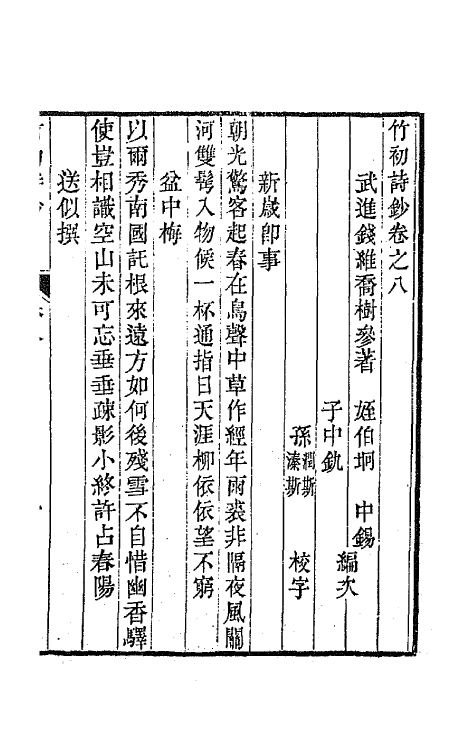 竹初詩鈔卷之八
武進錢維喬樹參著　姪伯坰　中錫
子中釚　編次
孫潤斯溱斯　校字
新歲卽事
朝光驚客起春在鳥聲中草作經年雨裘非隔夜風關
河雙鬢入物候一杯通指日天涯柳依依望不窮
盆中梅
以爾秀南國託根來遠方如何後殘雪不自惜幽香驛
使豈相識空山未可忘垂垂疎影小終許占春陽
送似撰